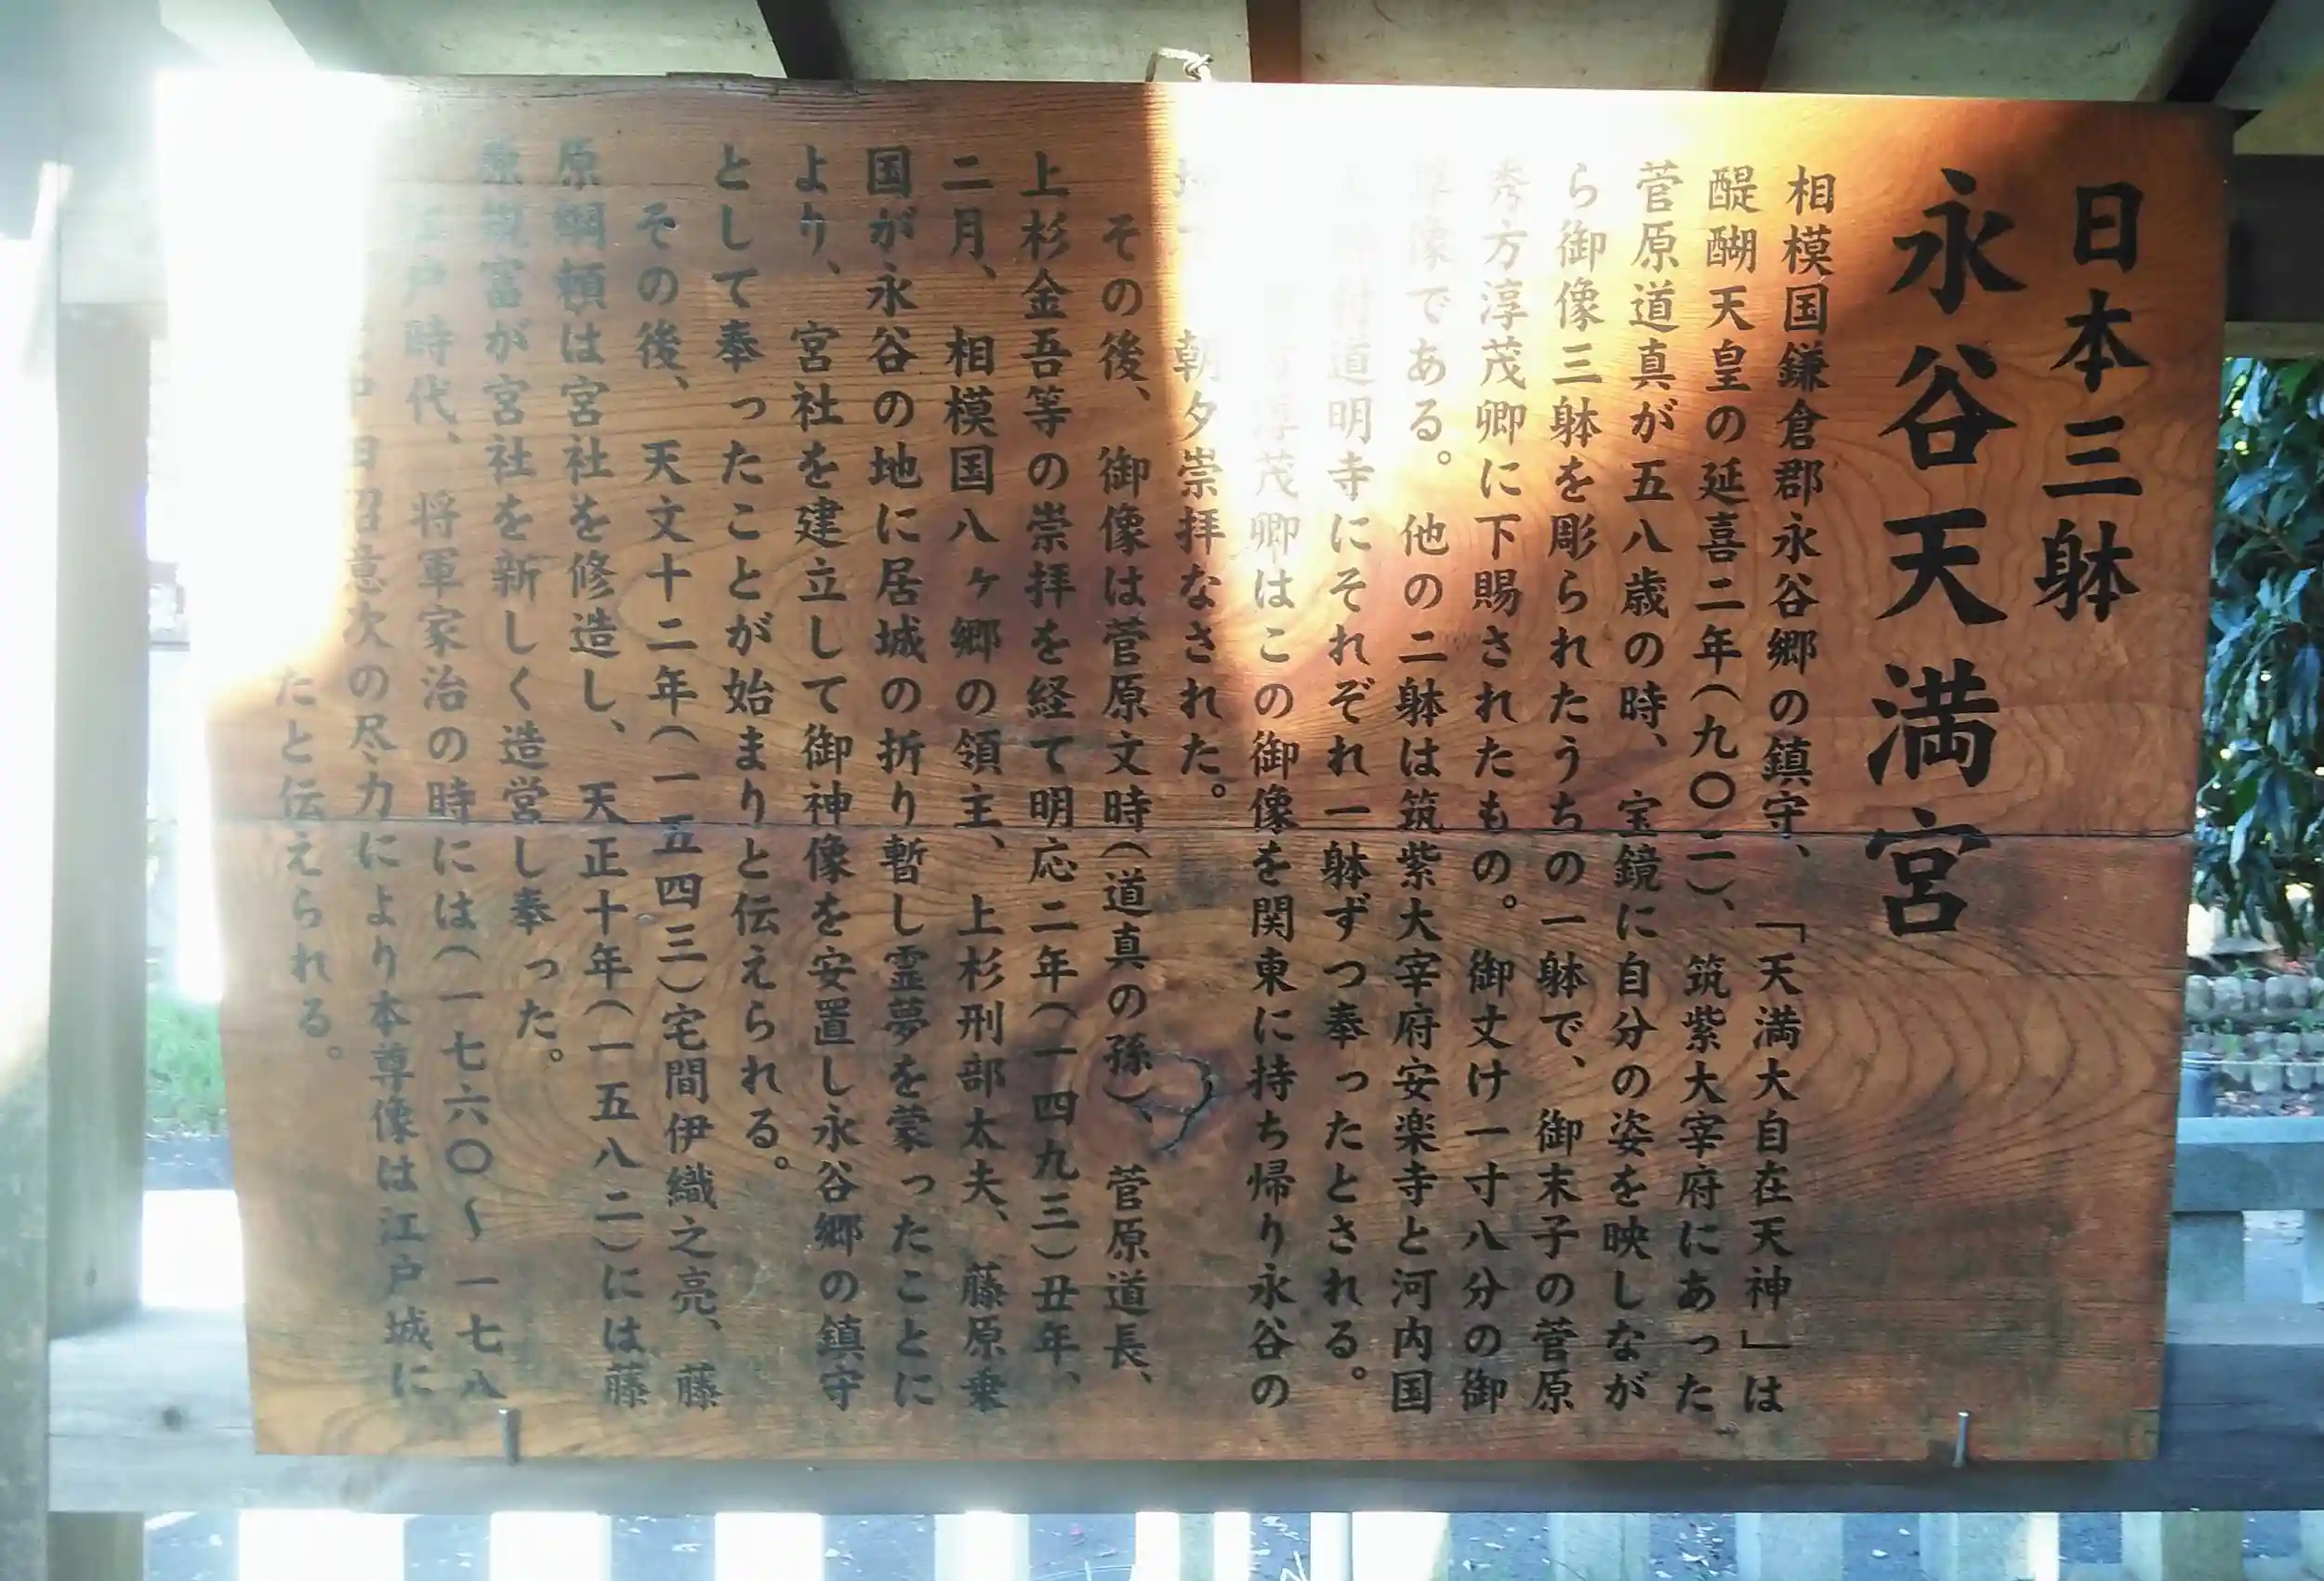 日本三躰
永谷天満宮
相模国鎌倉郡永谷郷の鎮守、「天満大自在天神」は
醍醐天皇の延喜二年(九〇二)、筑紫大宰府にあった
菅原道真が五八歳の時、宝鏡に自分の姿を映しなが
ら御像三躰を彫られたうちの一躰で、御末子の菅原
秀方淳茂卿に下賜されたもの。御丈け一寸八分の御
像である。他の二躰は筑紫大宰府安楽寺と河内国
道明寺にそれぞれ一躰ずつ奉ったとされる。
淳茂卿はこの御像を関東に持ち帰り永谷の
朝夕崇拝なされた。
その後、御像は菅原文時(道真の孫)、菅原道長、
上杉金吾等の崇拝を経て明応二年(一四九三)丑年、
二月、相模国八ヶ郷の領主、上杉刑部太夫、藤原乗
国が永谷の地に居城の折り暫し霊夢を蒙ったことに
より、宮社を建立して御神像を安置し永谷郷の鎮守
として奉ったことが始まりと伝えられる。
その後、天文十二年(一五四三)宅間伊織之亮、藤
原綱頼は宮社を修造し、天正十年(一五八二)には藤
原規富が宮社を新しく造営し奉った。
江戸時代、将軍家治の時には(一七六〇〜一七八
中田沼意次の尽力により本尊像は江戸城に
たと伝えられる。